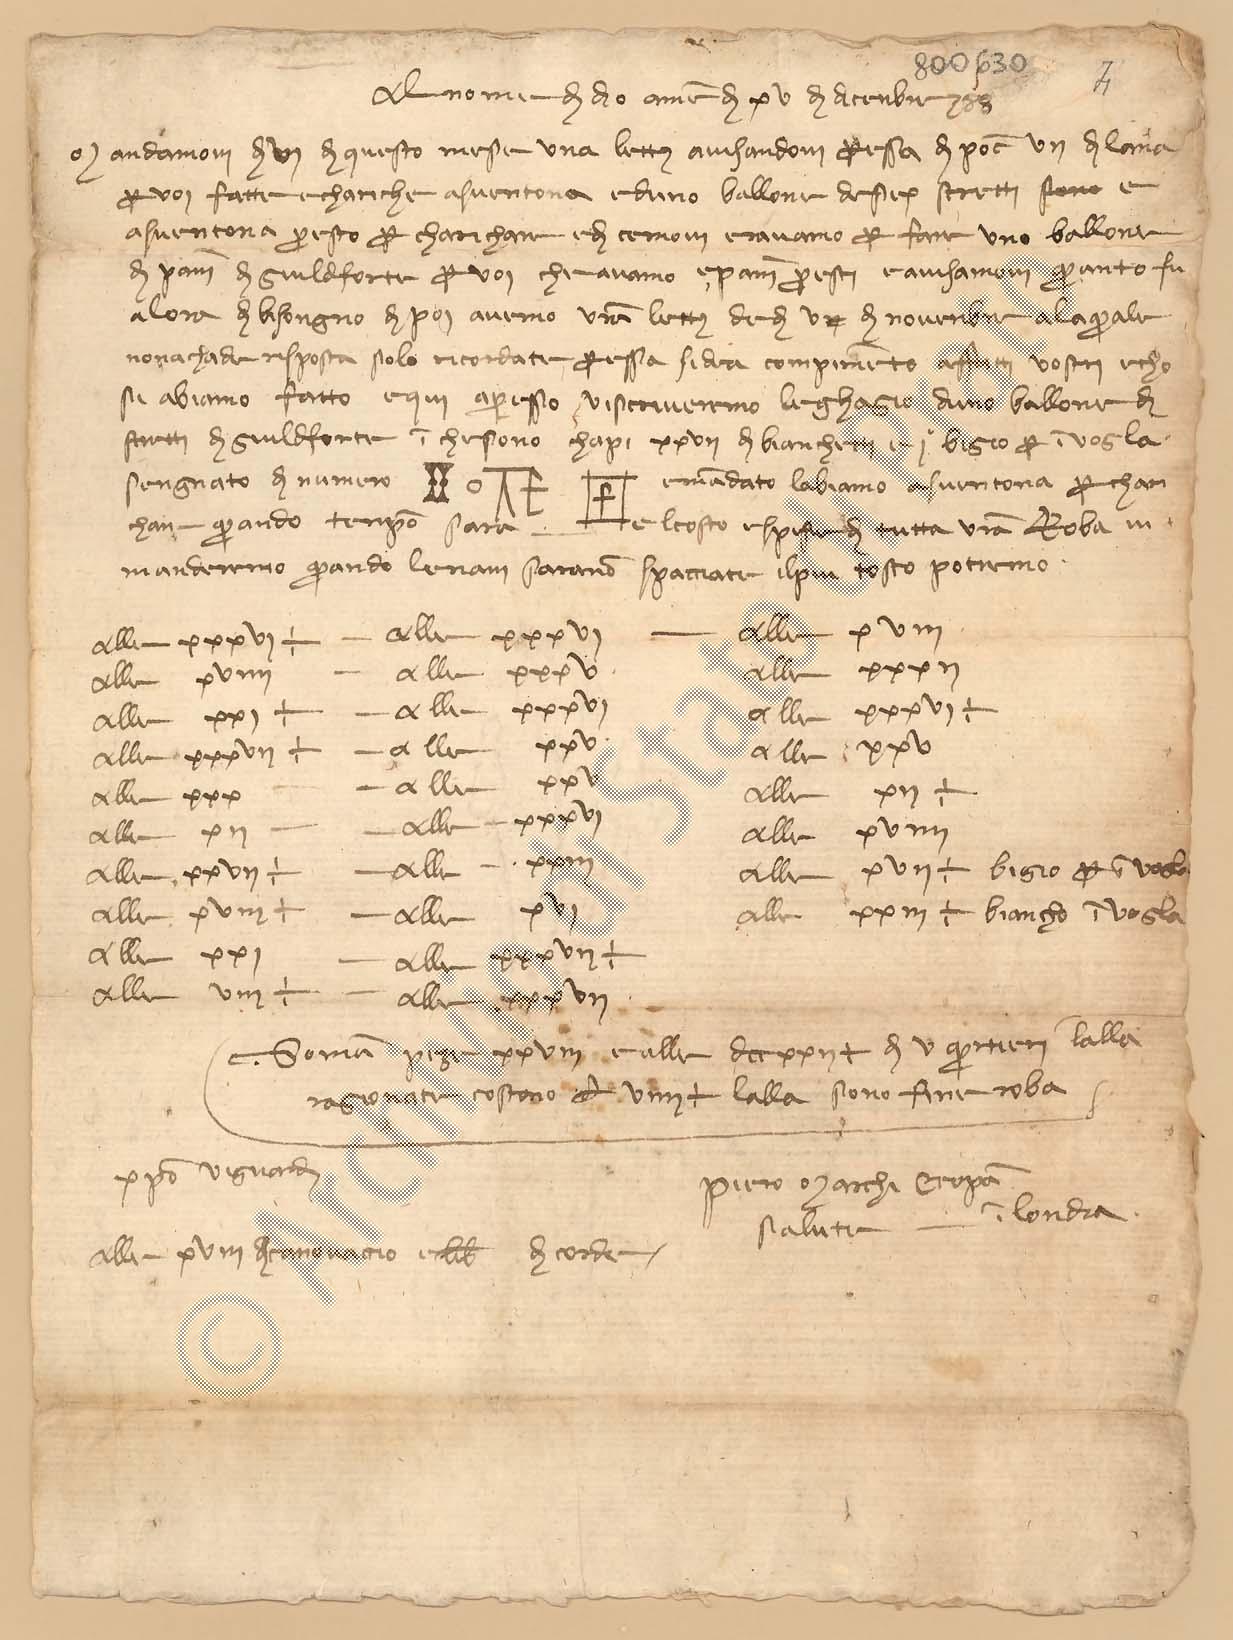 800630
Al nome di dio amen di xv di dicenbre 388
Mandamovi di vi di questo mese una lettera avisandovi per essa di poche vii di lana
per voi fatte e chariche a suentona e d uno ballone de sep stretti sono e
a suentona presto per charichare e dicemovi eravamo per fare uno ballone
di panni di guildforte per voi che avamo e panni presti e avisamovi quanto fu
alora di bisongno di poi avemo vostra lettera de di di novenbre a la quale
non achade risposta solo ricordate per essa si dea compimento a fatti vostri e cho
si abiamo fatto e qui apresso vi scriveremo leghagio d uno ballone di
stretti di guildforte in che sono chapi xxvii di bianchetti e j bigio per invogla
sengnato di numero e mandato l abiamo a suentona per chari
chare quando tenpo sara e l costo e spese di tutta vostra Roba vi
manderemo quando le navi sarano spacciate il piu tosto potremo
alle xxxvi † — alle xxxvj — alle xviii
alle xviiii — alle xxxv alle xxxii
alle xxi † — alle xxxvi alle xxxvi †
alle xxxvii † — alle xxv alle xxv
alle xxx — alle xxv alle xii †
alle xii — alle xxxvi alle xviiii
alle xxvii † — alle xxiii alle xvii † bigio per invogla
alle xviii † — alle xvi alle xxiii † biancho invogla
alle xxi — alle xxxvii †
alle viii † — alle xxxvii
Soma peze xxviii e alle dccxxii † di v quartieri l alla
ragionate costano d viiii † l alla sono fine roba
xpo vi guardi
Piero Marchi e conpangni
salute — in londra
alle xviii di canovacio e libbre di corde